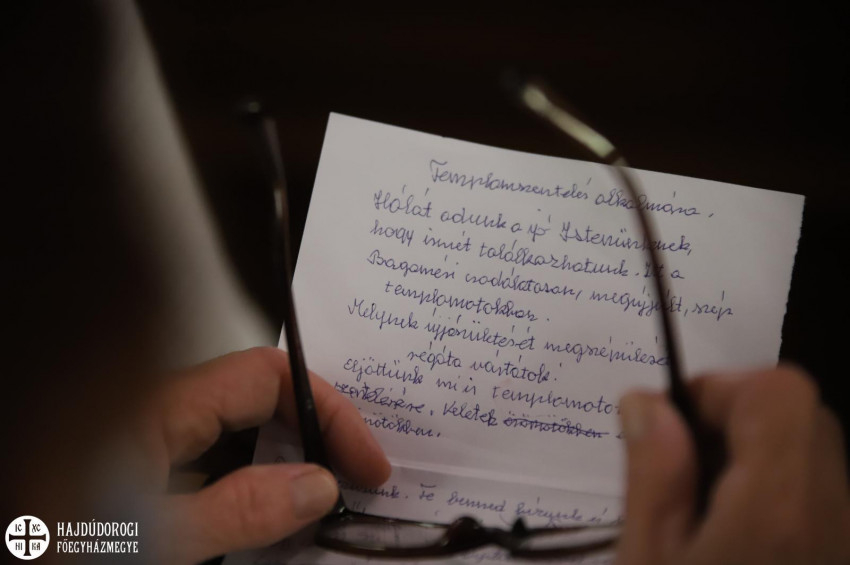 Templomszentelés alkalmára.
Hálát adunk a jó Istenünknek,
hogy ismét találkozhatunk. Itt a
Bagaméri csodálatosan, megújjult, szép
templomotokban.
Melynek újjászületését megszépülését
régóta vártátok!
Eljöttünk mi is templomotok
szentelésére. Veletek
Te benned bízunk
IC XC
NI KA
HAJDÚDOROGI
FŐEGYHÁZMEGYE